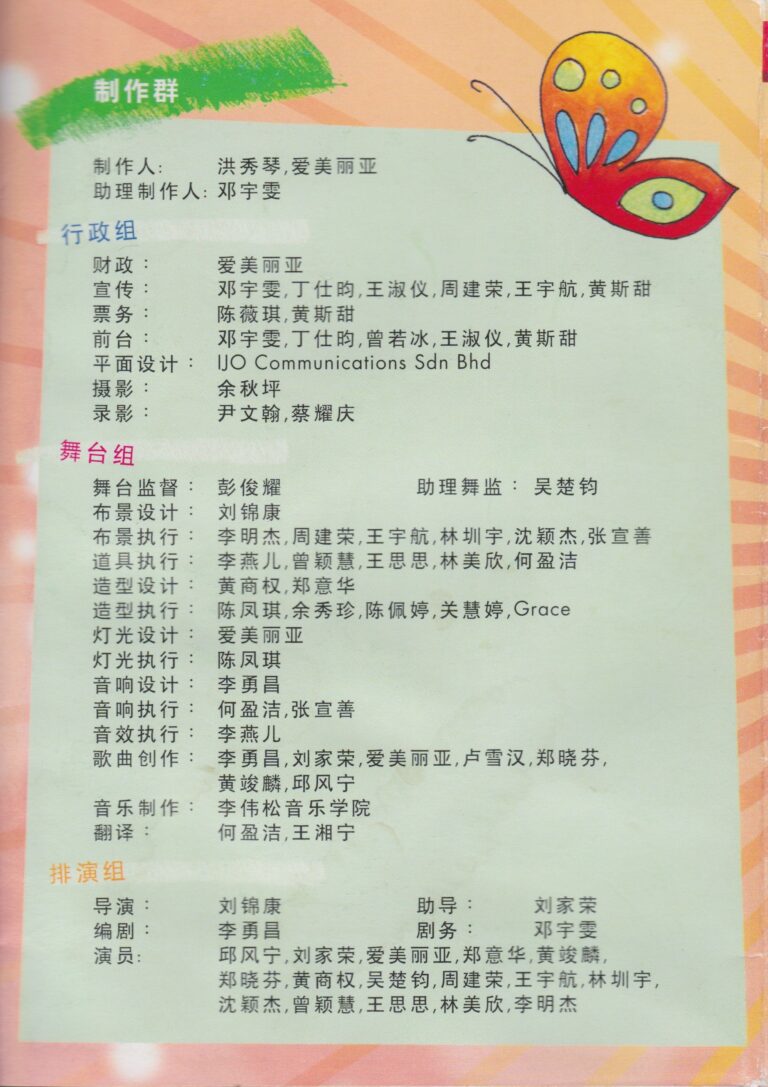 制作群
制作人: 洪秀琴,爱美丽亚
助理制作人: 邓宇雯
行政组
财政： 爱美丽亚
宣传： 邓宇雯,丁仕昀,王淑仪,周建荣,王宇航,黄斯甜
票务： 陈薇琪,黄斯甜
前台： 邓宇雯,丁仕昀,曾若冰,王淑仪,黄斯甜
平面设计： IJO Communications Sdn Bhd
摄影： 余秋坪
录影： 尹文翰,蔡耀庆
舞台组
舞台监督： 彭俊耀 助理舞监： 吴楚钧
布景设计： 刘锦康
布景执行： 李明杰,周建荣,王宇航,林圳宇,沈颖杰,张宣善
道具执行： 李燕儿,曾颖慧,王思思,林美欣,何盈洁
造型设计： 黄商权,郑意华
造型执行： 陈凤琪,余秀珍,陈佩婷,关慧婷,Grace
灯光设计： 爱美丽亚
灯光执行： 陈凤琪
音响设计： 李勇昌
音响执行： 何盈洁,张宣善
音效执行： 李燕儿
歌曲创作： 李勇昌,刘家荣,爱美丽亚,卢雪汉,郑晓芬,
黄竣麟,邱风宁
音乐制作： 李伟松音乐学院
翻译： 何盈洁,王湘宁
排演组
导演： 刘锦康 助导： 刘家荣
编剧： 李勇昌 剧务： 邓宇雯
演员: 邱风宁,刘家荣,爱美丽亚,郑意华,黄竣麟,
郑晓芬,黄商权,吴楚钧,周建荣,王宇航,林圳宇,
沈颖杰,曾颖慧,王思思,林美欣,李明杰